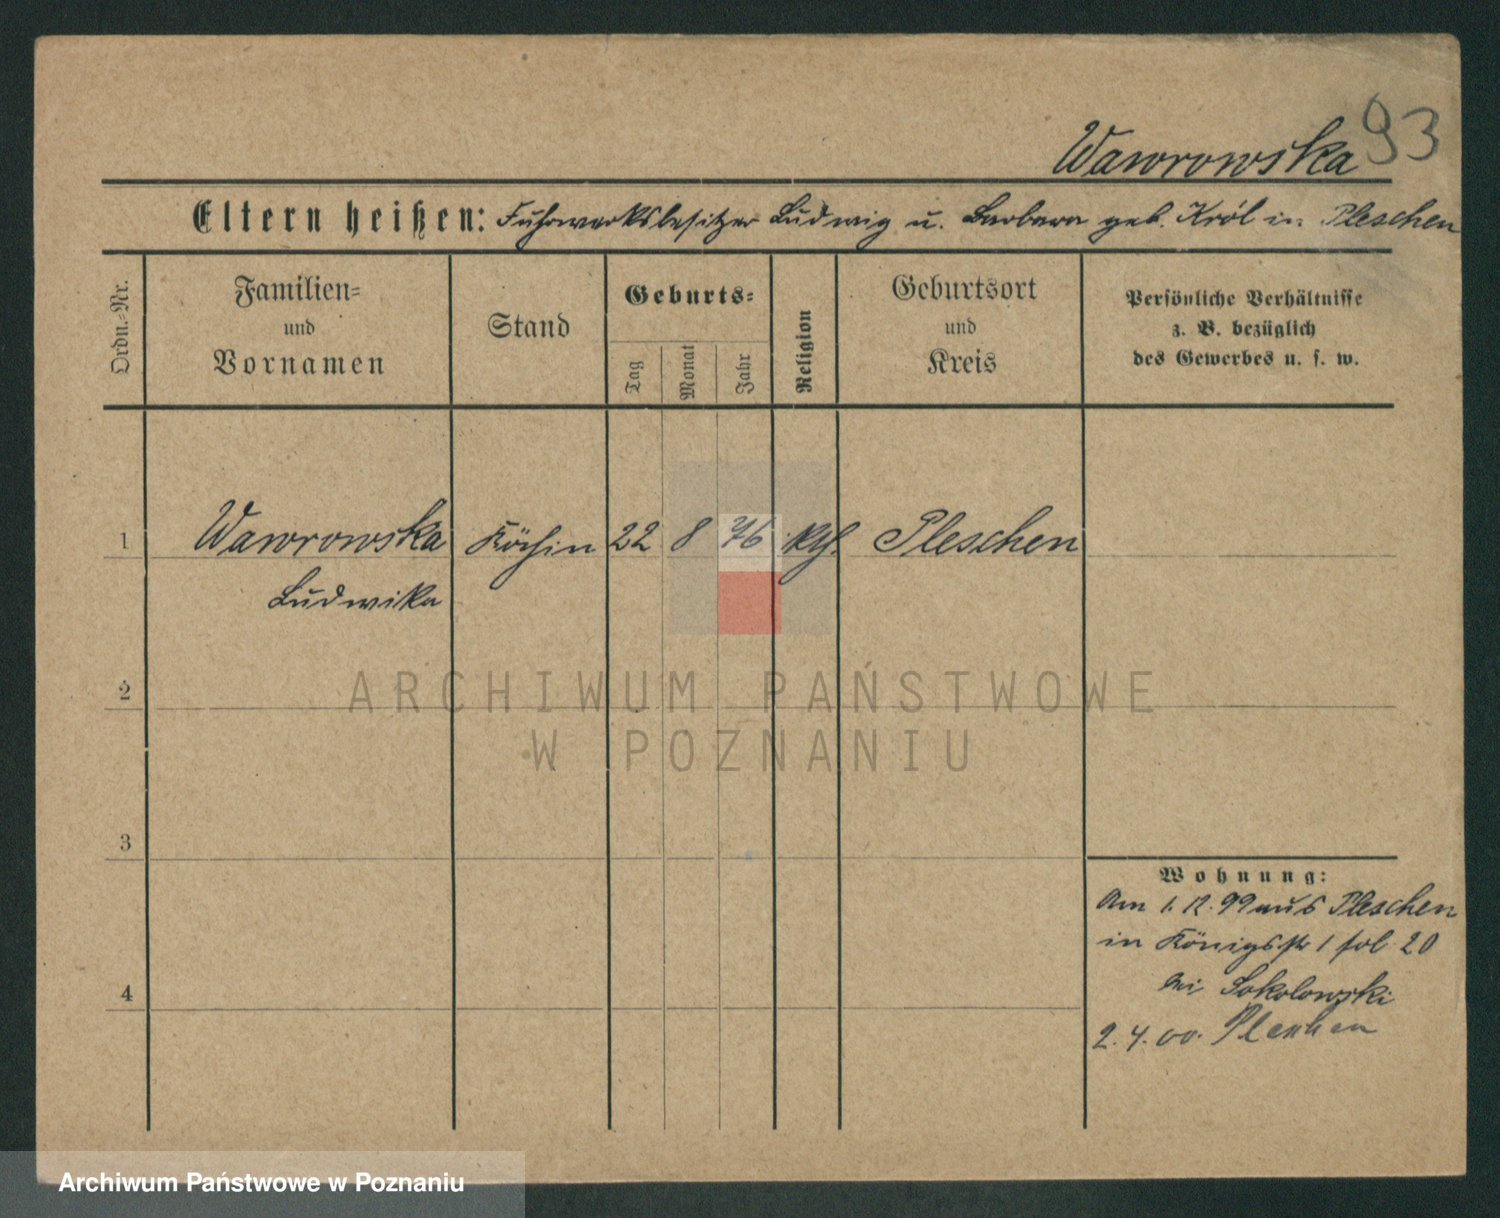 93
Wawrowska
Eltern heißen: Fuhrwerksbesitzer Ludwig u. Barbara geb. Król in Pleschen
Ordn.-Nr.
Familien-
und
Vornamen
Stand
Geburts-
Tag
Monat
Jahr
Religion
Geburtsort
und
Kreis
Persönliche Verhältnisse
z. B. bezüglich
des Gewerbes u. s. w.
1 Wawrowska Köchin 22 8 76 kth. Pleschen
Ludwika
2
ARCHIWUM PAŃSTWOWE
W POZNANIU
3
Wohnung:
Am 1.12.99 aus Pleschen
in Königsstr 1 fol 20
bei Sokolowski
4
2.4.00. Pleschen
Archiwum Państwowe w Poznaniu